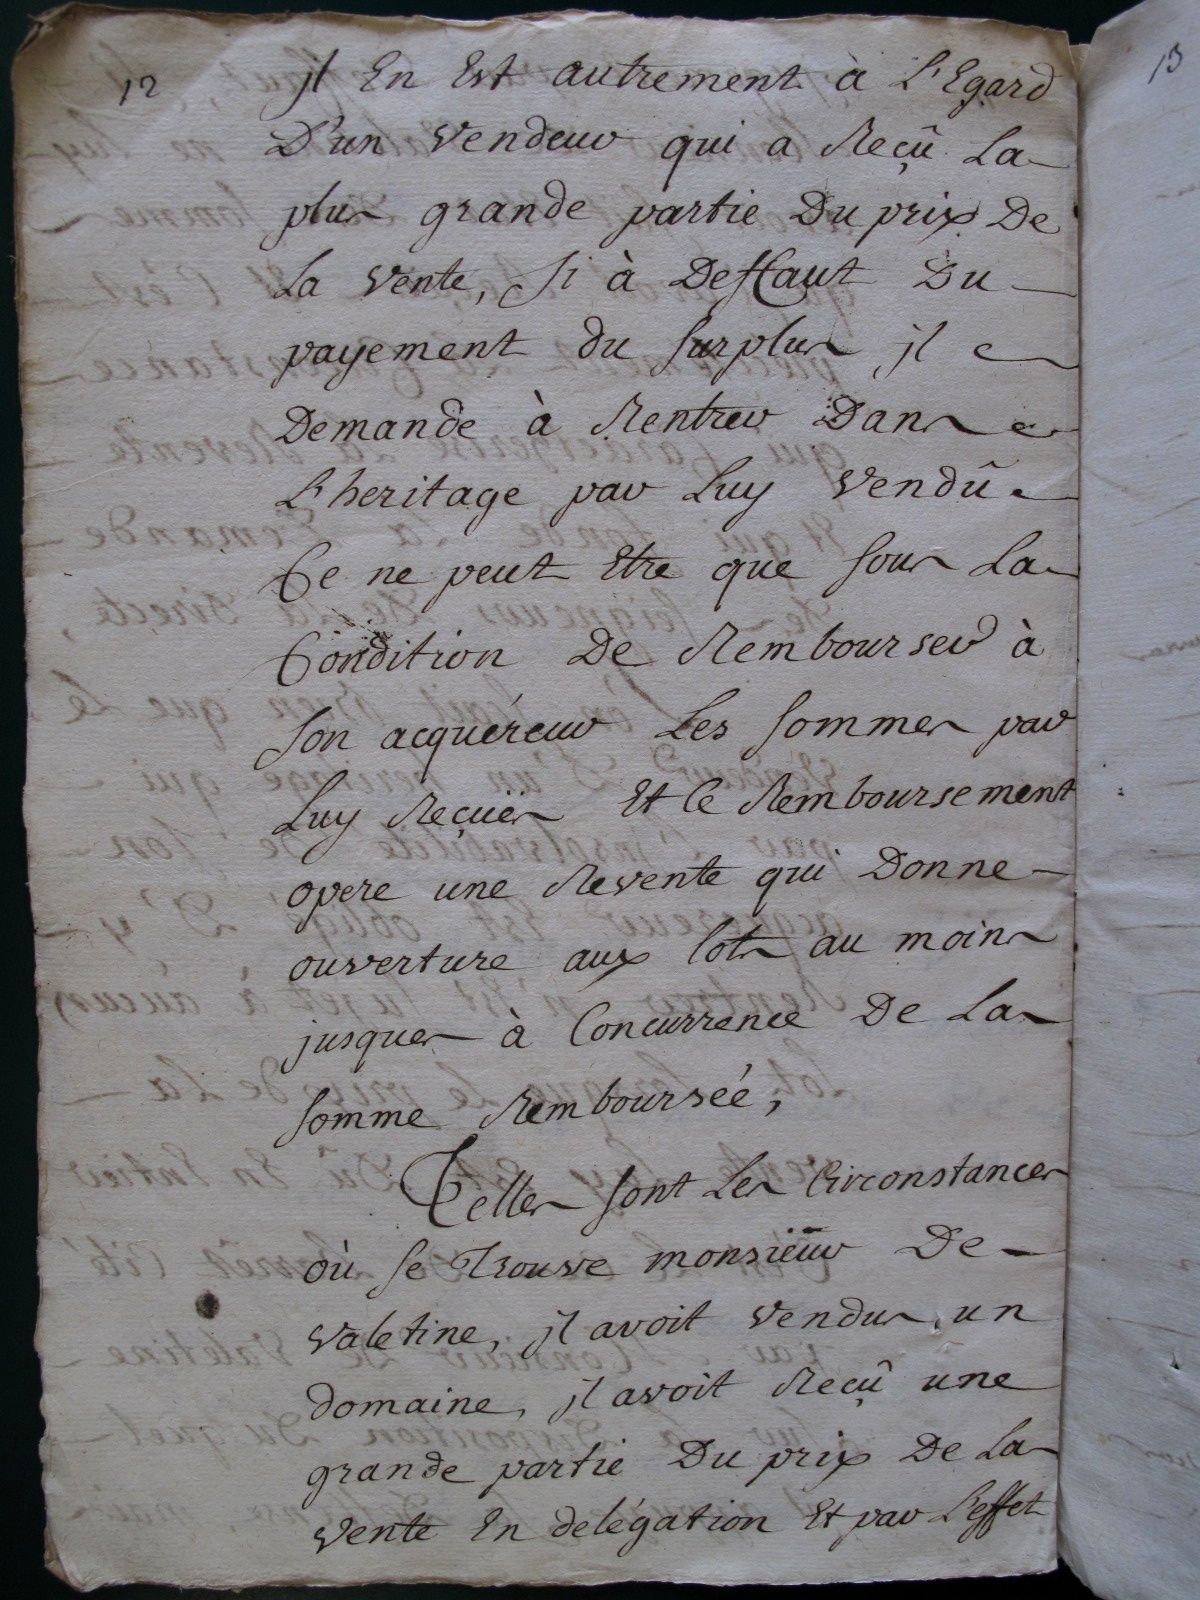 12
13
jl En Est autrement à L'Egard
D'un Vendeur qui a Reçû La
plus grande partie Du prix De
La Vente, Si à Deffaut Du
payement du surplus jl
Demande à Rentrer Dans
L'heritage par Luy Vendû
Ce ne peut Etre que sous La
Condition De Rembourser à
son acquéreur Les sommes par
Luy Reçuës Et Ce Remboursement
opere une Revente qui Donne
ouverture aux lots au moins
jusques à Concurrence De La
somme Remboursée,
Telles sont Les Circonstances
où se Trouve monsieur De
Valetine, jl avoit Vendus un
domaine, jl avoit Reçû une
grande partie Du prix De La
Vente En delégation Et par L'effet